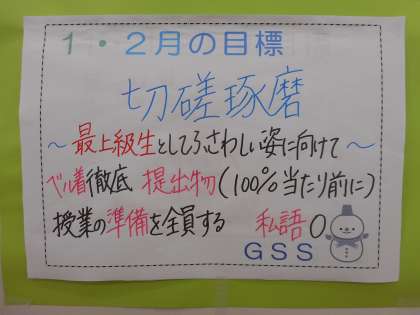 1・2月の目標
切磋琢磨
～最上級生としてふさわしい姿に向けて～
ベル着徹底 提出物(100%当たり前に)
授業の準備を全員する 私語0
GSS